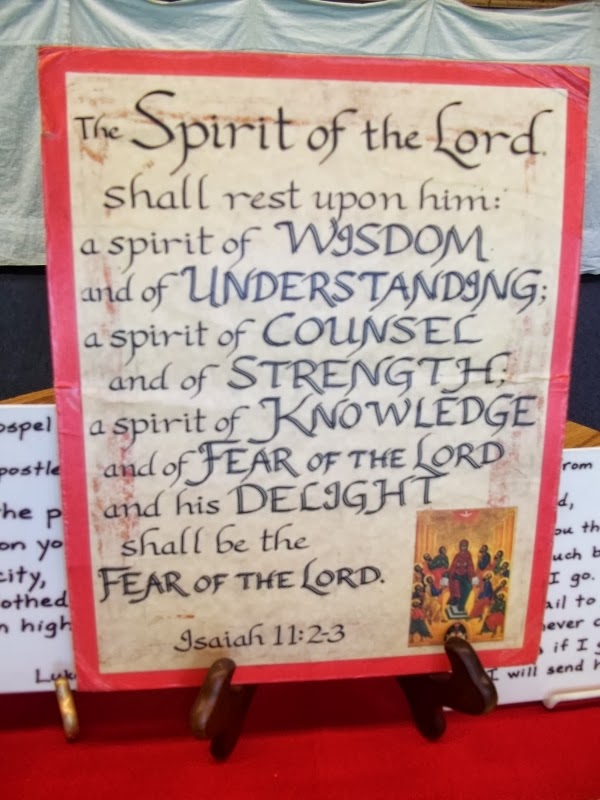 The Spirit of the Lord
shall rest upon him:
a spirit of WISDOM
and of UNDERSTANDING;
a spirit of COUNSEL
and of STRENGTH;
a spirit of KNOWLEDGE
and of FEAR OF THE LORD
and his DELIGHT
shall be the
FEAR OF THE LORD.
Isaiah 11:2-3
city,
on high
I go.
if I
I will send